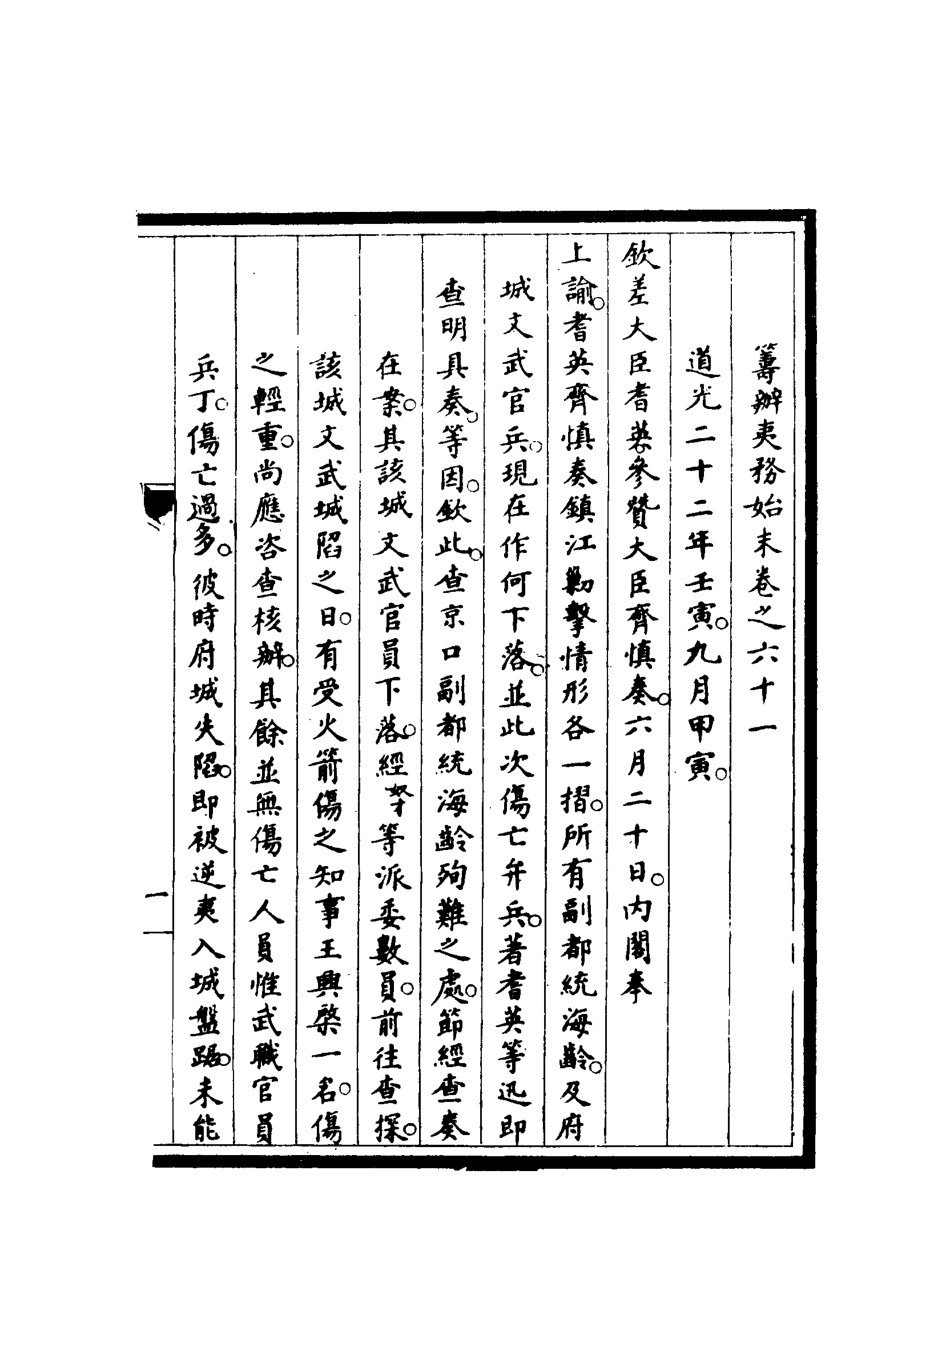 籌辦夷務始末卷之六十一
道光二十二年壬寅。九月甲寅。
欽差大臣耆英。參贊大臣齊慎奏。六月二十日。內閣奉
上諭。耆英齊慎奏鎮江勦擊情形各一摺。所有副都統海齡。及府
城文武官兵。現在作何下落。並此次傷亡弁兵。著耆英等迅即
查明具奏。等因。欽此。查京口副都統海齡殉難之處。節經查奏
在案。其該城文武官員下落。經奴才等派委數員。前往查探。
該城文武城陷之日。有受火箭傷之知事王興棨一名。傷
之輕重。尚應咨查核辦。其餘並無傷亡人員惟武職官員
兵丁。傷亡過多。彼時府城失陷。即被逆夷入城盤踞。未能
一